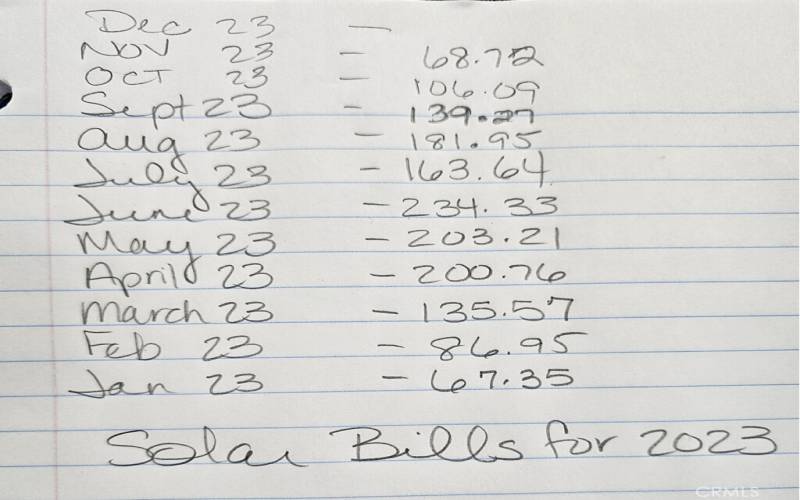 Dec 23 -
NOV 23 - 68.72
OCT 23 - 106.09
Sept 23 - 139.27
Aug 23 - 181.95
July 23 - 163.64
June 23 - 234.33
May 23 - 203.21
April 23 - 200.76
March 23 - 135.57
Feb 23 - 86.95
Jan 23 - 67.35
Solar Bills for 2023
CRMLS